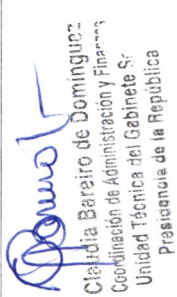 Claudia Bareiro de Domínguez
Coordinación de Administración y Finanzas
Unidad Técnica del Gabinete S
Presidencia de la República